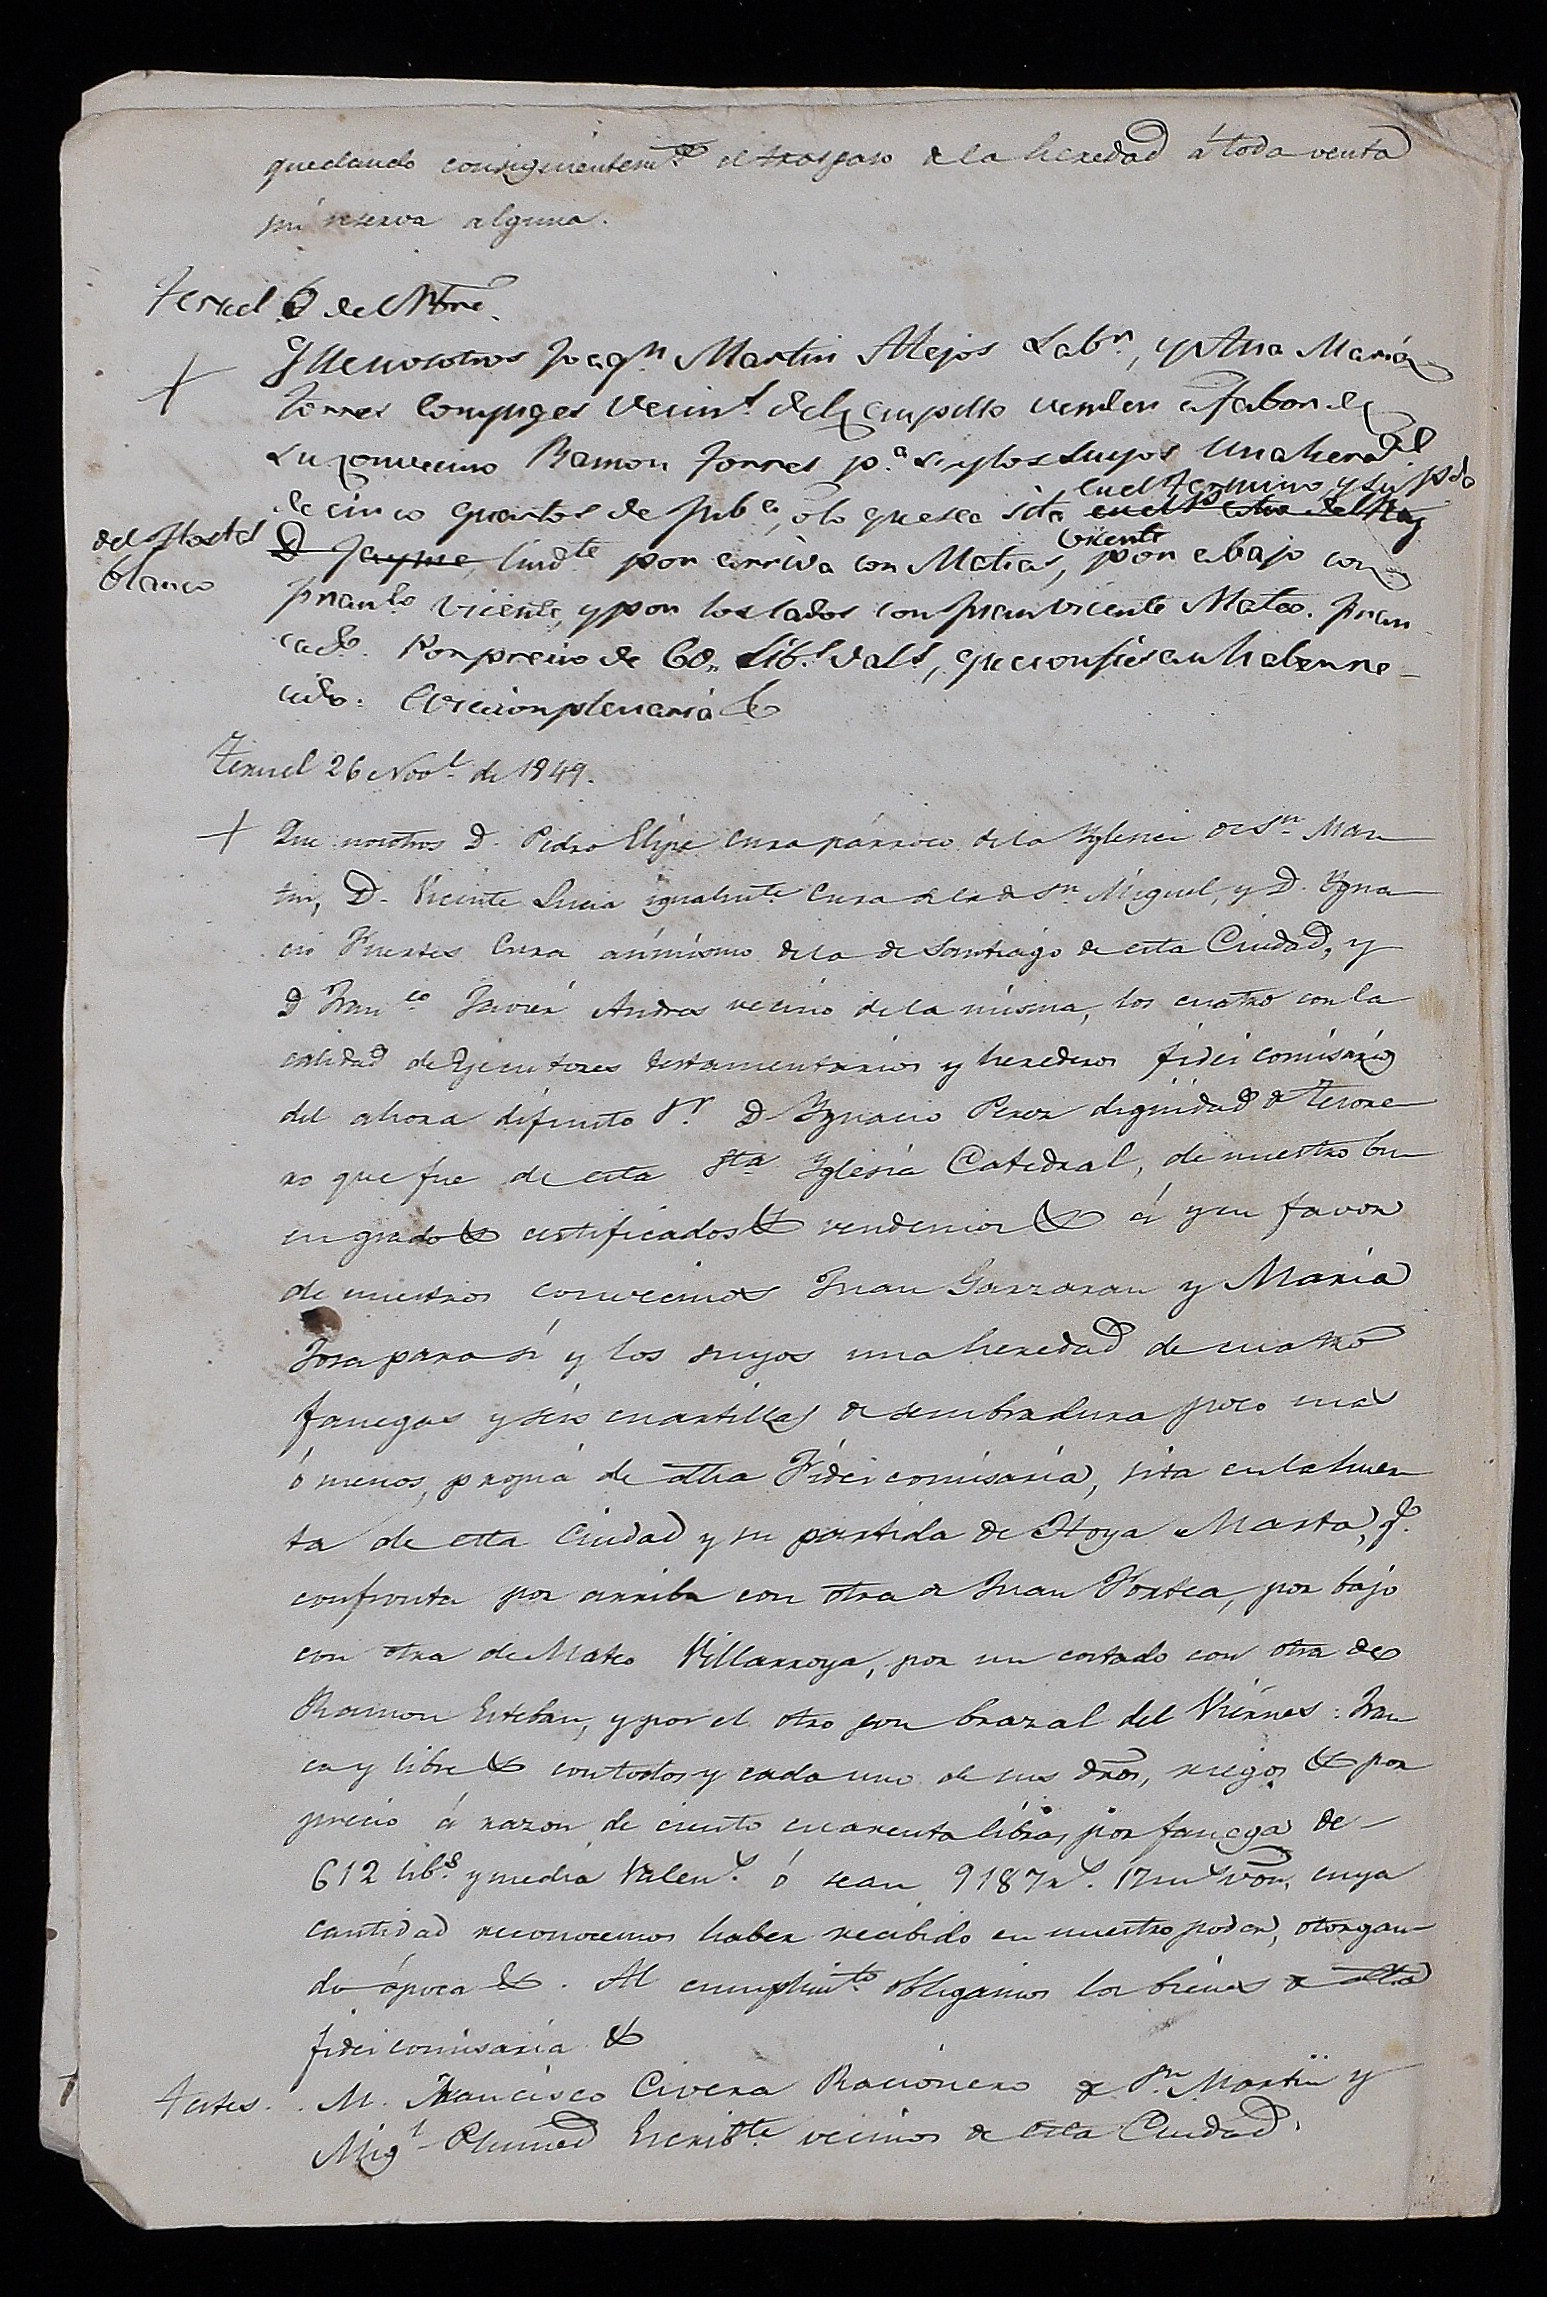 quedando consiguientemte el traspaso de la heredad á toda venta
sin reserva alguna.
Teruel 6 de Nbre.
Que nosotros Joaqn Martin Alejos Labr, y Ana Maria
Torres Conyuges Vecins del Campillo venden a fabor de
su convecino Ramon Torres pa si y los suyos Una heredd
de cinco quartos de Juba, o lo que sea sita en el termino y su pda
del Mostel
blanco
D Jayme, lindte por arriva con Matias Vicente, por abajo con
Juan Vicente, y por los lados con Juan Vicente Mateo. Fran
cado. Por precio de 60 Libs Vals, que confiesan haber re-
cido. Eviccion plenaria &
Teruel 26 Nove de 1849.
Que nosotros D. Pedro Elipe Cura párroco de la Yglesia de Sn Mar
tin, D. Vicente Lucia igualmte Cura de la de Sn Miguel, y D. Ygna
cio Fuertes Cura asimismo de la de Santiago de esta Ciudad, y
D Franco Javier Andres vecino de la misma, los cuatro con la
calidad de Ejecutores testamentarios y herederos fideicomisarios
del ahora difunto Sr. D Ygnacio Perez dignidad de Tesore
ro que fue de esta Sta Yglesia Catedral, de nuestro bu
en grado & certificados & vendemos & á y en favor
de nuestros convecinos Juan Garzaran y María
Josa para si y los suyos una heredad de cuatro
fanegas y seis cuartillas de sembradura poco mas
ó menos, propia de dha Fideicomisaría, sita en la huer
ta de esta Ciudad y su partida de Hoya Marta, q.
confronta por arriba con otra de Juan Fortea, por bajo
con otra de Mateo Villarroya, por un costado con otra de
Ramon Esteban, y por el otro con brazal del Viernes: Fran
ca y libre & con todos y cada uno de sus dros, riegos & por
precio á razon de ciento cuarenta libras por fanega de
612 libs y media Valens ó sean 9187 rs. 17 ms von, cuya
cantidad reconocemos haber recibido en nuestro poder, otorgan-
do ápoca &. Al cumplimto obligamos los bienes de dha
fideicomisaria &
Testes. M. Francisco Civera Racionero de Sn Martin y
Migl Plumed Escribte vecinos de esta Ciudad.